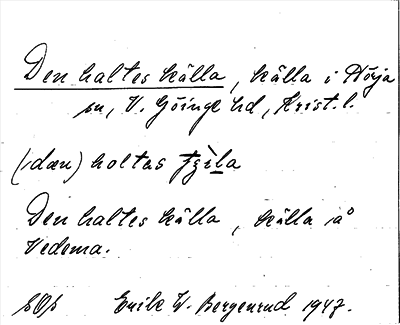 Den haltes källa, källa i Hörja
sn, V. Göinge hd, Krist. l.
(dæn) holtas
Den haltes källa, källa på
Vedema.
Erik W. Bergenrud 1947.